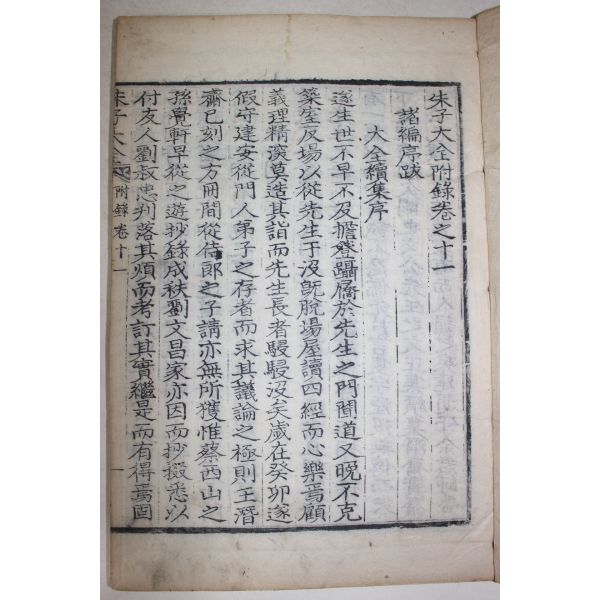 朱子大全附錄卷之十一
諸編序跋
大全續集序
遂生世不早不及擔簦躡屩於先生之門聞道又晚不克
築室反塲以從先生于沒旣脫塲屋讀四經而心樂焉顧
義理精深莫造其詣而先生長者駸駸沒矣歲在癸卯遂
假守建安從門人弟子之存者而求其議論之極則王潛
齋已刻之方冊間從侍郎之子請亦無所獲惟蔡西山之
孫覺軒早從之遊抄錄成秩劉文昌家亦因而抄掇悉以
付友人劉叔忠刋落其煩而考訂其實繼是而有得焉固
朱子大全 附錄 卷十一 一